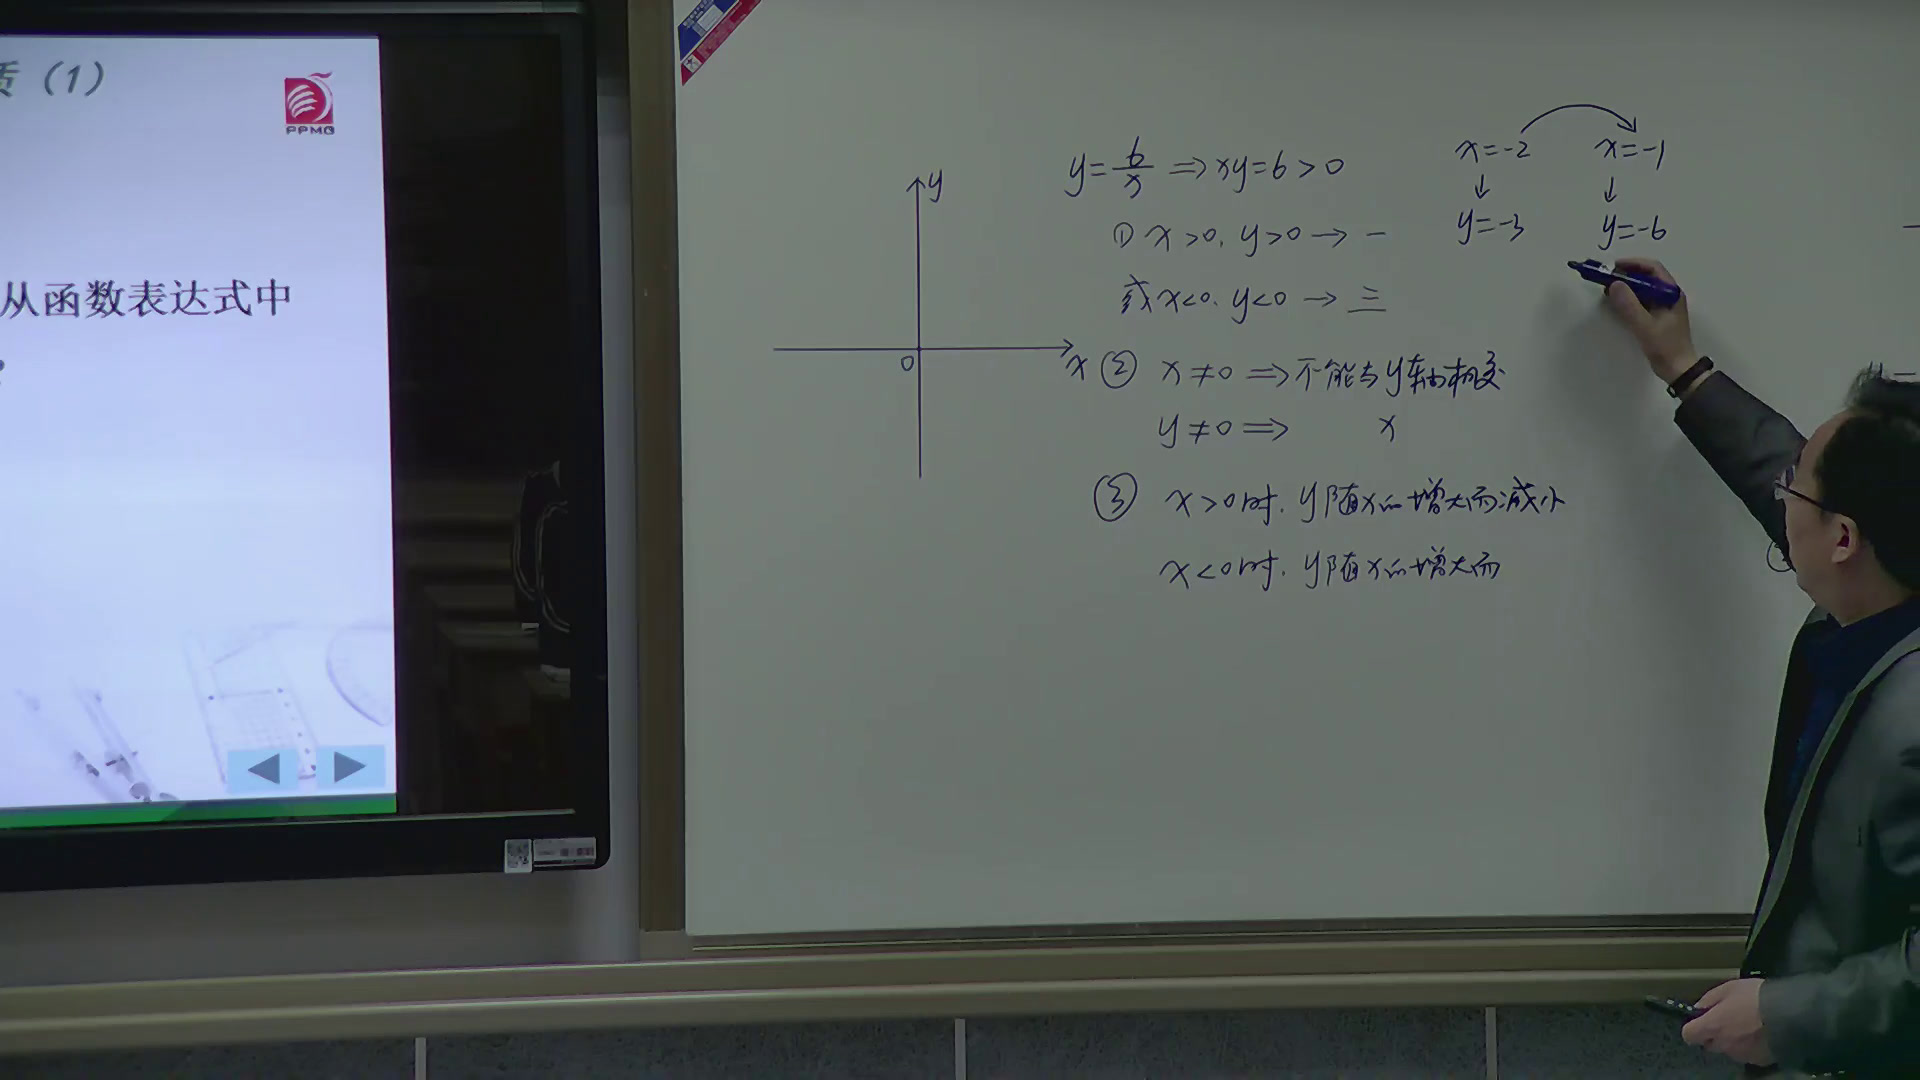 质（1）
PPMG
从函数表达式中
?
y
O
x
y=6/x ⇒ xy=6>0
① x>0, y>0 → 一
或 x<0, y<0 → 三
② x≠0 ⇒ 不能与y轴相交
y≠0 ⇒ x
③ x>0时, y随x的增大而减小
x<0时, y随x的增大而
x=-2 x=-1
↓ ↓
y=-3 y=-6